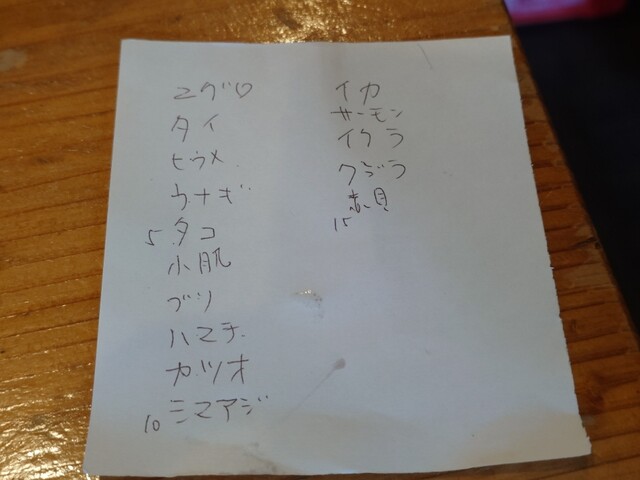 マグロ
タイ
ヒラメ
ウナギ
5 タコ
小肌
ブリ
ハマチ
カツオ
10 シマアジ
イカ
サーモン
イクラ
クジラ
15 赤貝